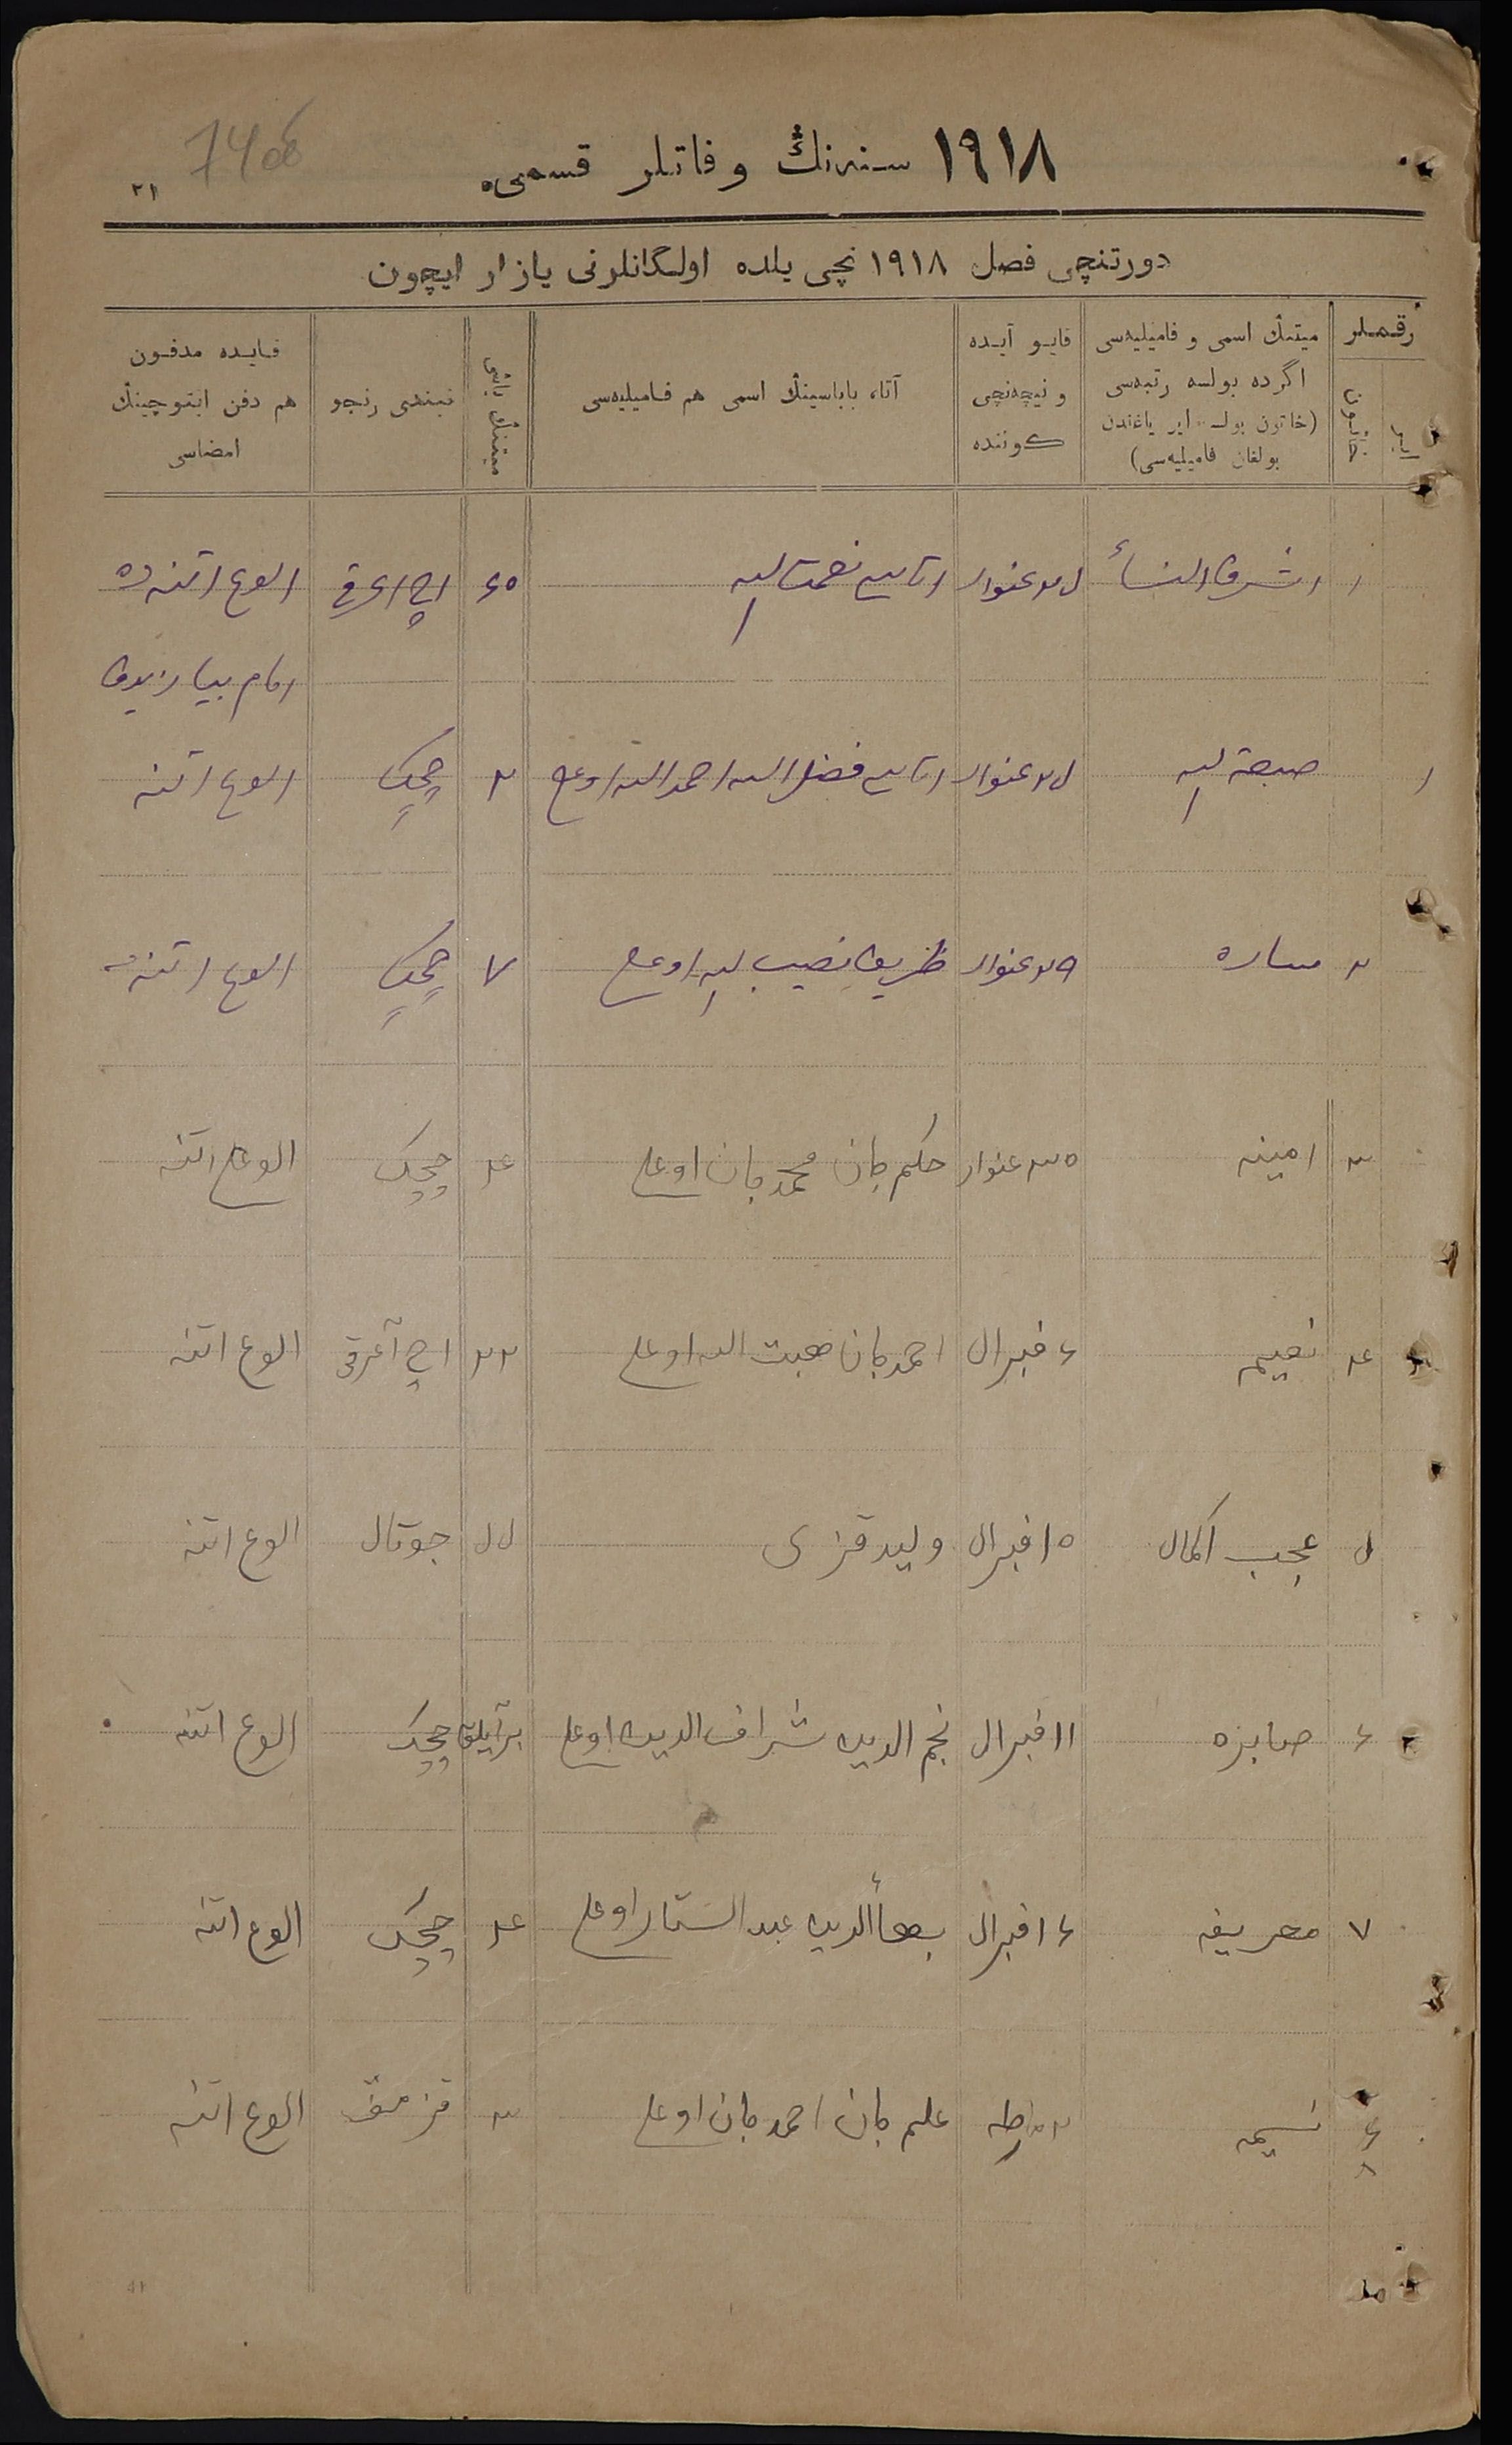 74об
٢١
١٩١٨ سنه‌نڭ وفاتلر قسمی
دورتنچی فصل ١٩١٨ نچی یلده اولگانلرنی یازار ایچون
رقملر
میتنڭ اسمی و فامیلیه‌سی
اگرده بولسه رتبه‌سی
(خاتون بولسه ایر یاغندن
بولغان فامیلیه‌سی)
قایو آیده
و نیچه‌نچی
كوننده
آتا، باباسینڭ اسمی هم فامیلیه‌سی
میتنڭ یاشی
نیندی رنجو
قایده مدفون
هم دفن ایتوچینڭ
امضاسی
١ اشرف النسأ عنوار اتاسی نعمت الله ٦٥ اچ اغرقی الوع اتنه ده
امام بیازیدف
١ صبعة الله عنوار اتاسی فضل الله احمد الله اوعلی ٢ چچك الوع اتنه
٢ ساره ٢٩ عنوار ظریف نصیب الله اوعلی ٧ چچك الوع اتنه
٣ امینه ٣٠ عنوار حكم جان محمد جان اوعلی ٤ چچك الوع اتنه
٤ نعیمه ٦ فبرال احمد جان هبت الله اوعلی ٢٢ اچ آغرقی الوع اتنه
٥ عجب اكمال ١٠ فبرال ولید قزی ٥٥ جوتال الوع اتنه
٦ صابره ١١ فبرال نجم الدین شراف الدین اوعلی بر آیلق چچك الوع اتنه
٧ معریفه ١٦ فبرال بهأ الدین عبد الستار اوعلی ٤ چچك الوع اتنه
٨ نسیمه علم جان احمد جان اوعلی ٣ قزمق الوع اتنه